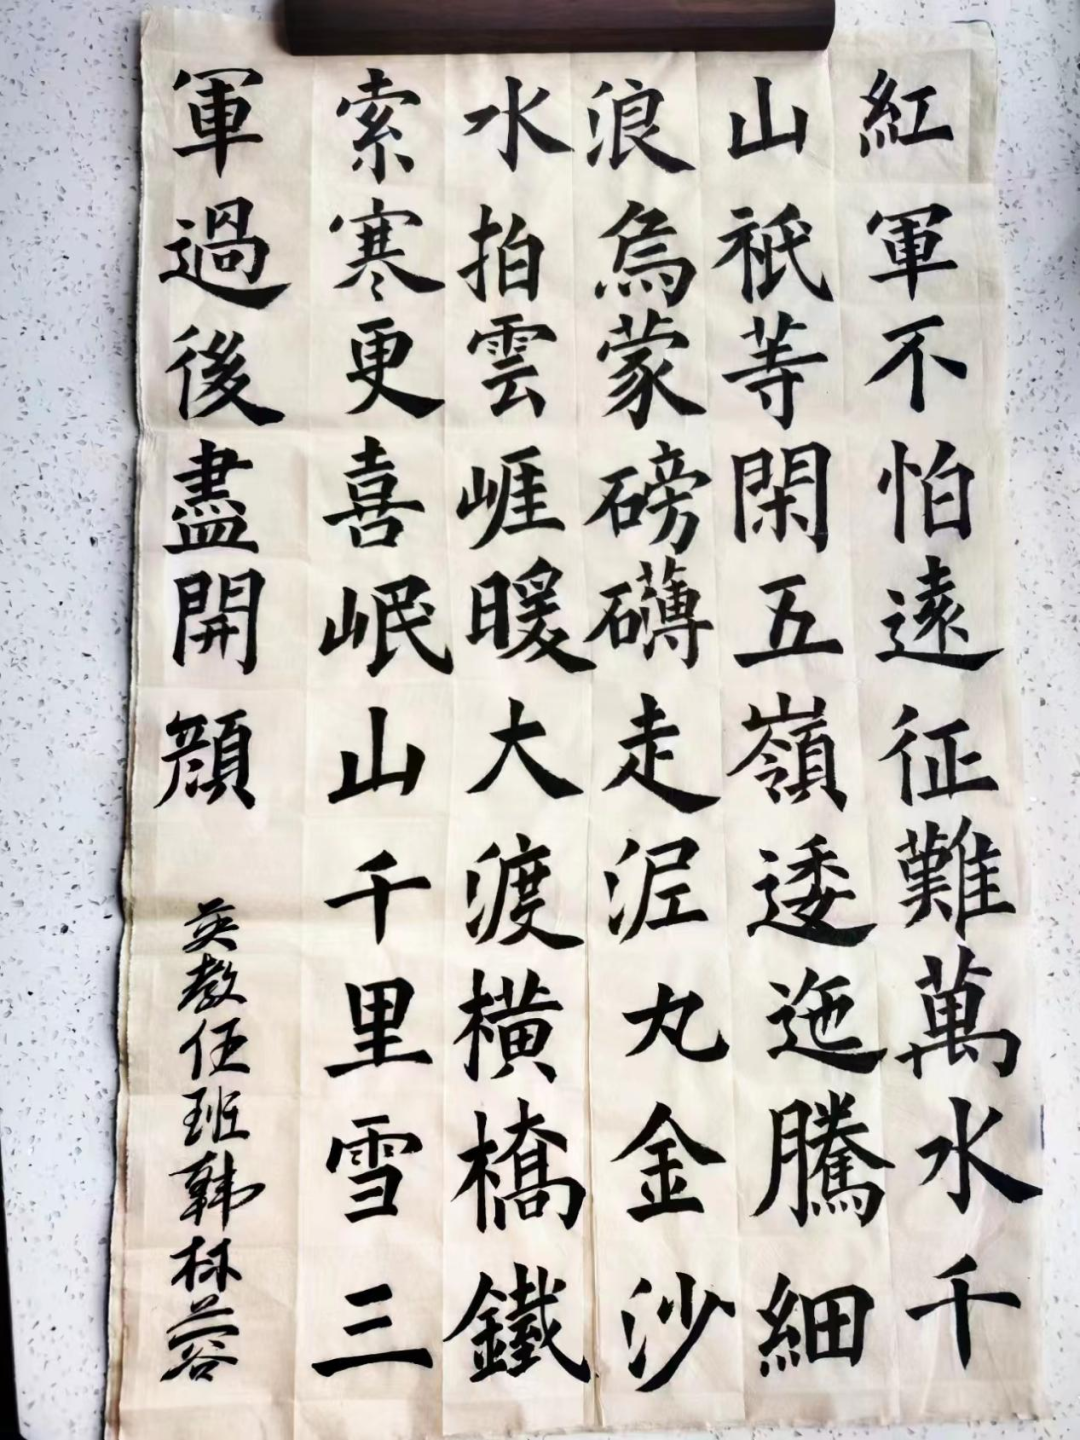 紅軍不怕遠征難萬水千
山祇等閑五嶺逶迤騰細
浪烏蒙磅礴走泥丸金沙
水拍雲崖暖大渡橫橋鐵
索寒更喜岷山千里雪三
軍過後盡開顔
英教伍班韩林蓉